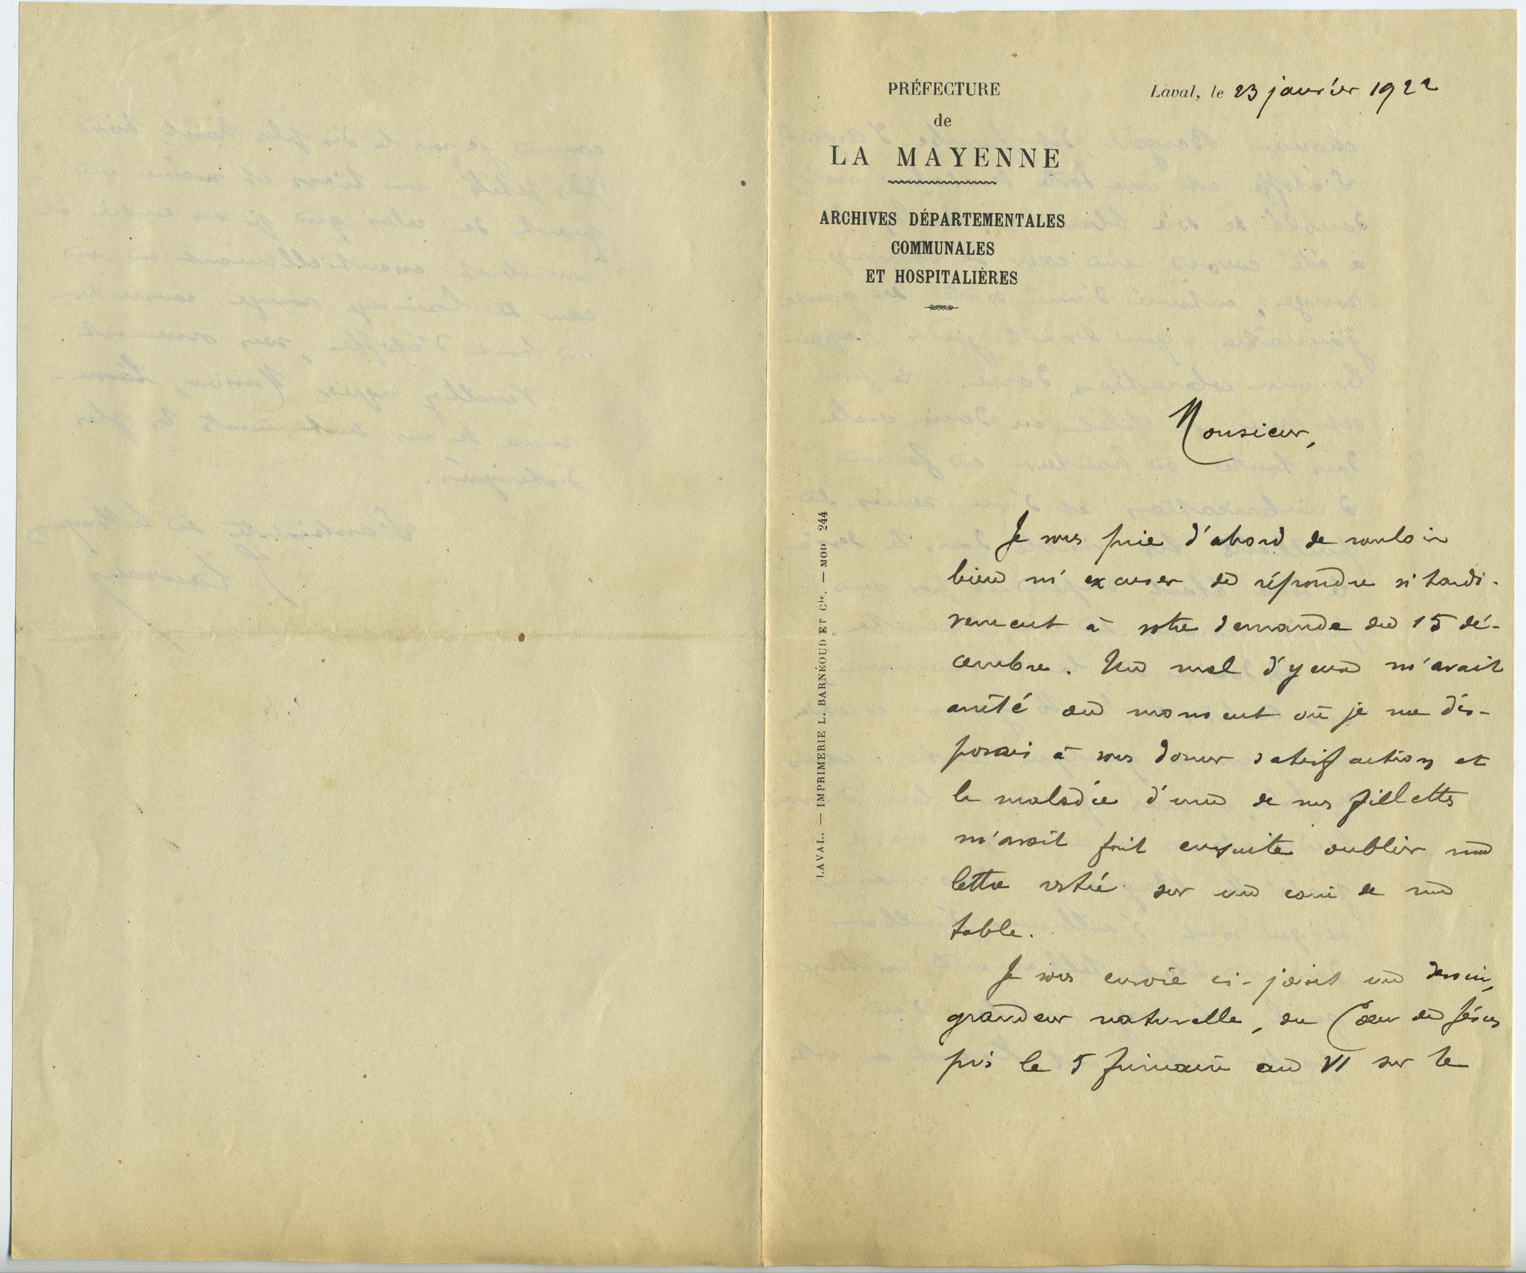 PRÉFECTURE
de
LA MAYENNE
ARCHIVES DÉPARTEMENTALES
COMMUNALES
ET HOSPITALIÈRES
Laval, le 23 janvier 1922
Monsieur,
Je vous prie d'abord de vouloir
bien m'excuser de répondre si tardi-
vement à votre demande du 15 dé-
cembre. Un mal d'yeux m'avait
arrêté au moment où je me dis-
posais à vous donner satisfaction et
la maladie d'une de mes fillettes
m'avait fait ensuite oublier ma
lettre restée sur un coin de ma
table.
Je vous envoie ci-joint un dessin,
grandeur naturelle, du Cœur de Jésus
pris le 5 frimaire an VI sur le
LAVAL. — IMPRIMERIE L. BARNÉOUD ET Cie. — MOD 244